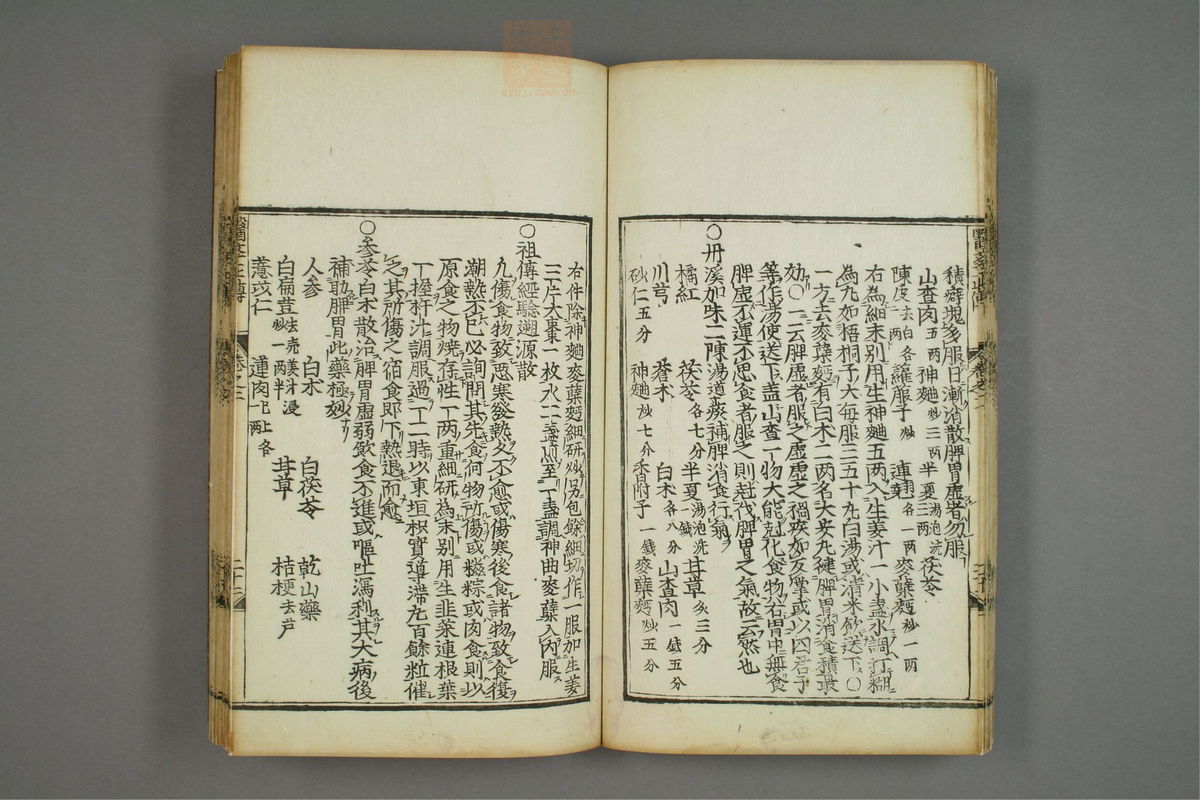 積癖塊多服日漸消散脾胃虛者勿服
山査肉五両神麯炒三両半夏湯泡洗三両茯苓
陳皮去白一両各羅服子炒連翹各一両麥蘖麪炒一両
右為細末別用生神麯五両入生姜汁一小盞水調打糊
為丸如梧桐子大每服三五十丸白湯或清米飲送下○
一方去麥蘖麪有白朮二両名大安丸健脾胃消食積最
効○一云脾虛者服之虛虛之禍疾如反掌或以四君子
等作湯使送下盖山査一物大能尅化食物若胃中無食
脾虛不運不思食者服之則尅伐脾胃之氣故云然也
○丹溪加味二陳湯導痰補脾消食行氣
橘紅 茯苓各七分半夏湯泡洗一錢甘草炙三分
川芎 蒼朮 白朮各八分山査肉一錢五分
砂仁五分 神麯炒七分香附子一錢麥蘖麪炒五分
右件除神麯麥蘖麪細研炒另包餘細切作一服加生姜
三片大棗一枚水二盞煎至一盞調神曲麥蘖入內服
○祖傳經驗遡源散
九傷食物致惡寒發熱久不愈或傷寒後食諸物致食復
潮熱不已必詢問其先食何物所傷或糍粽或肉食則以
原食之物燒存性一両重細研為末別用生韮菜連根葉
一握杵汁調服過一二時以東垣枳實導滞丸百餘粒催
之其所傷之宿食即下熱退而愈
○參苓白朮散治脾胃虛弱飲食不進或嘔吐瀉利其大病後
補助脾胃此藥極妙
人參 白朮 白茯苓 乾山藥
白扁荳去売姜汁浸炒一両半 甘草 桔梗去芦
薏苡仁 蓮肉已上各一両